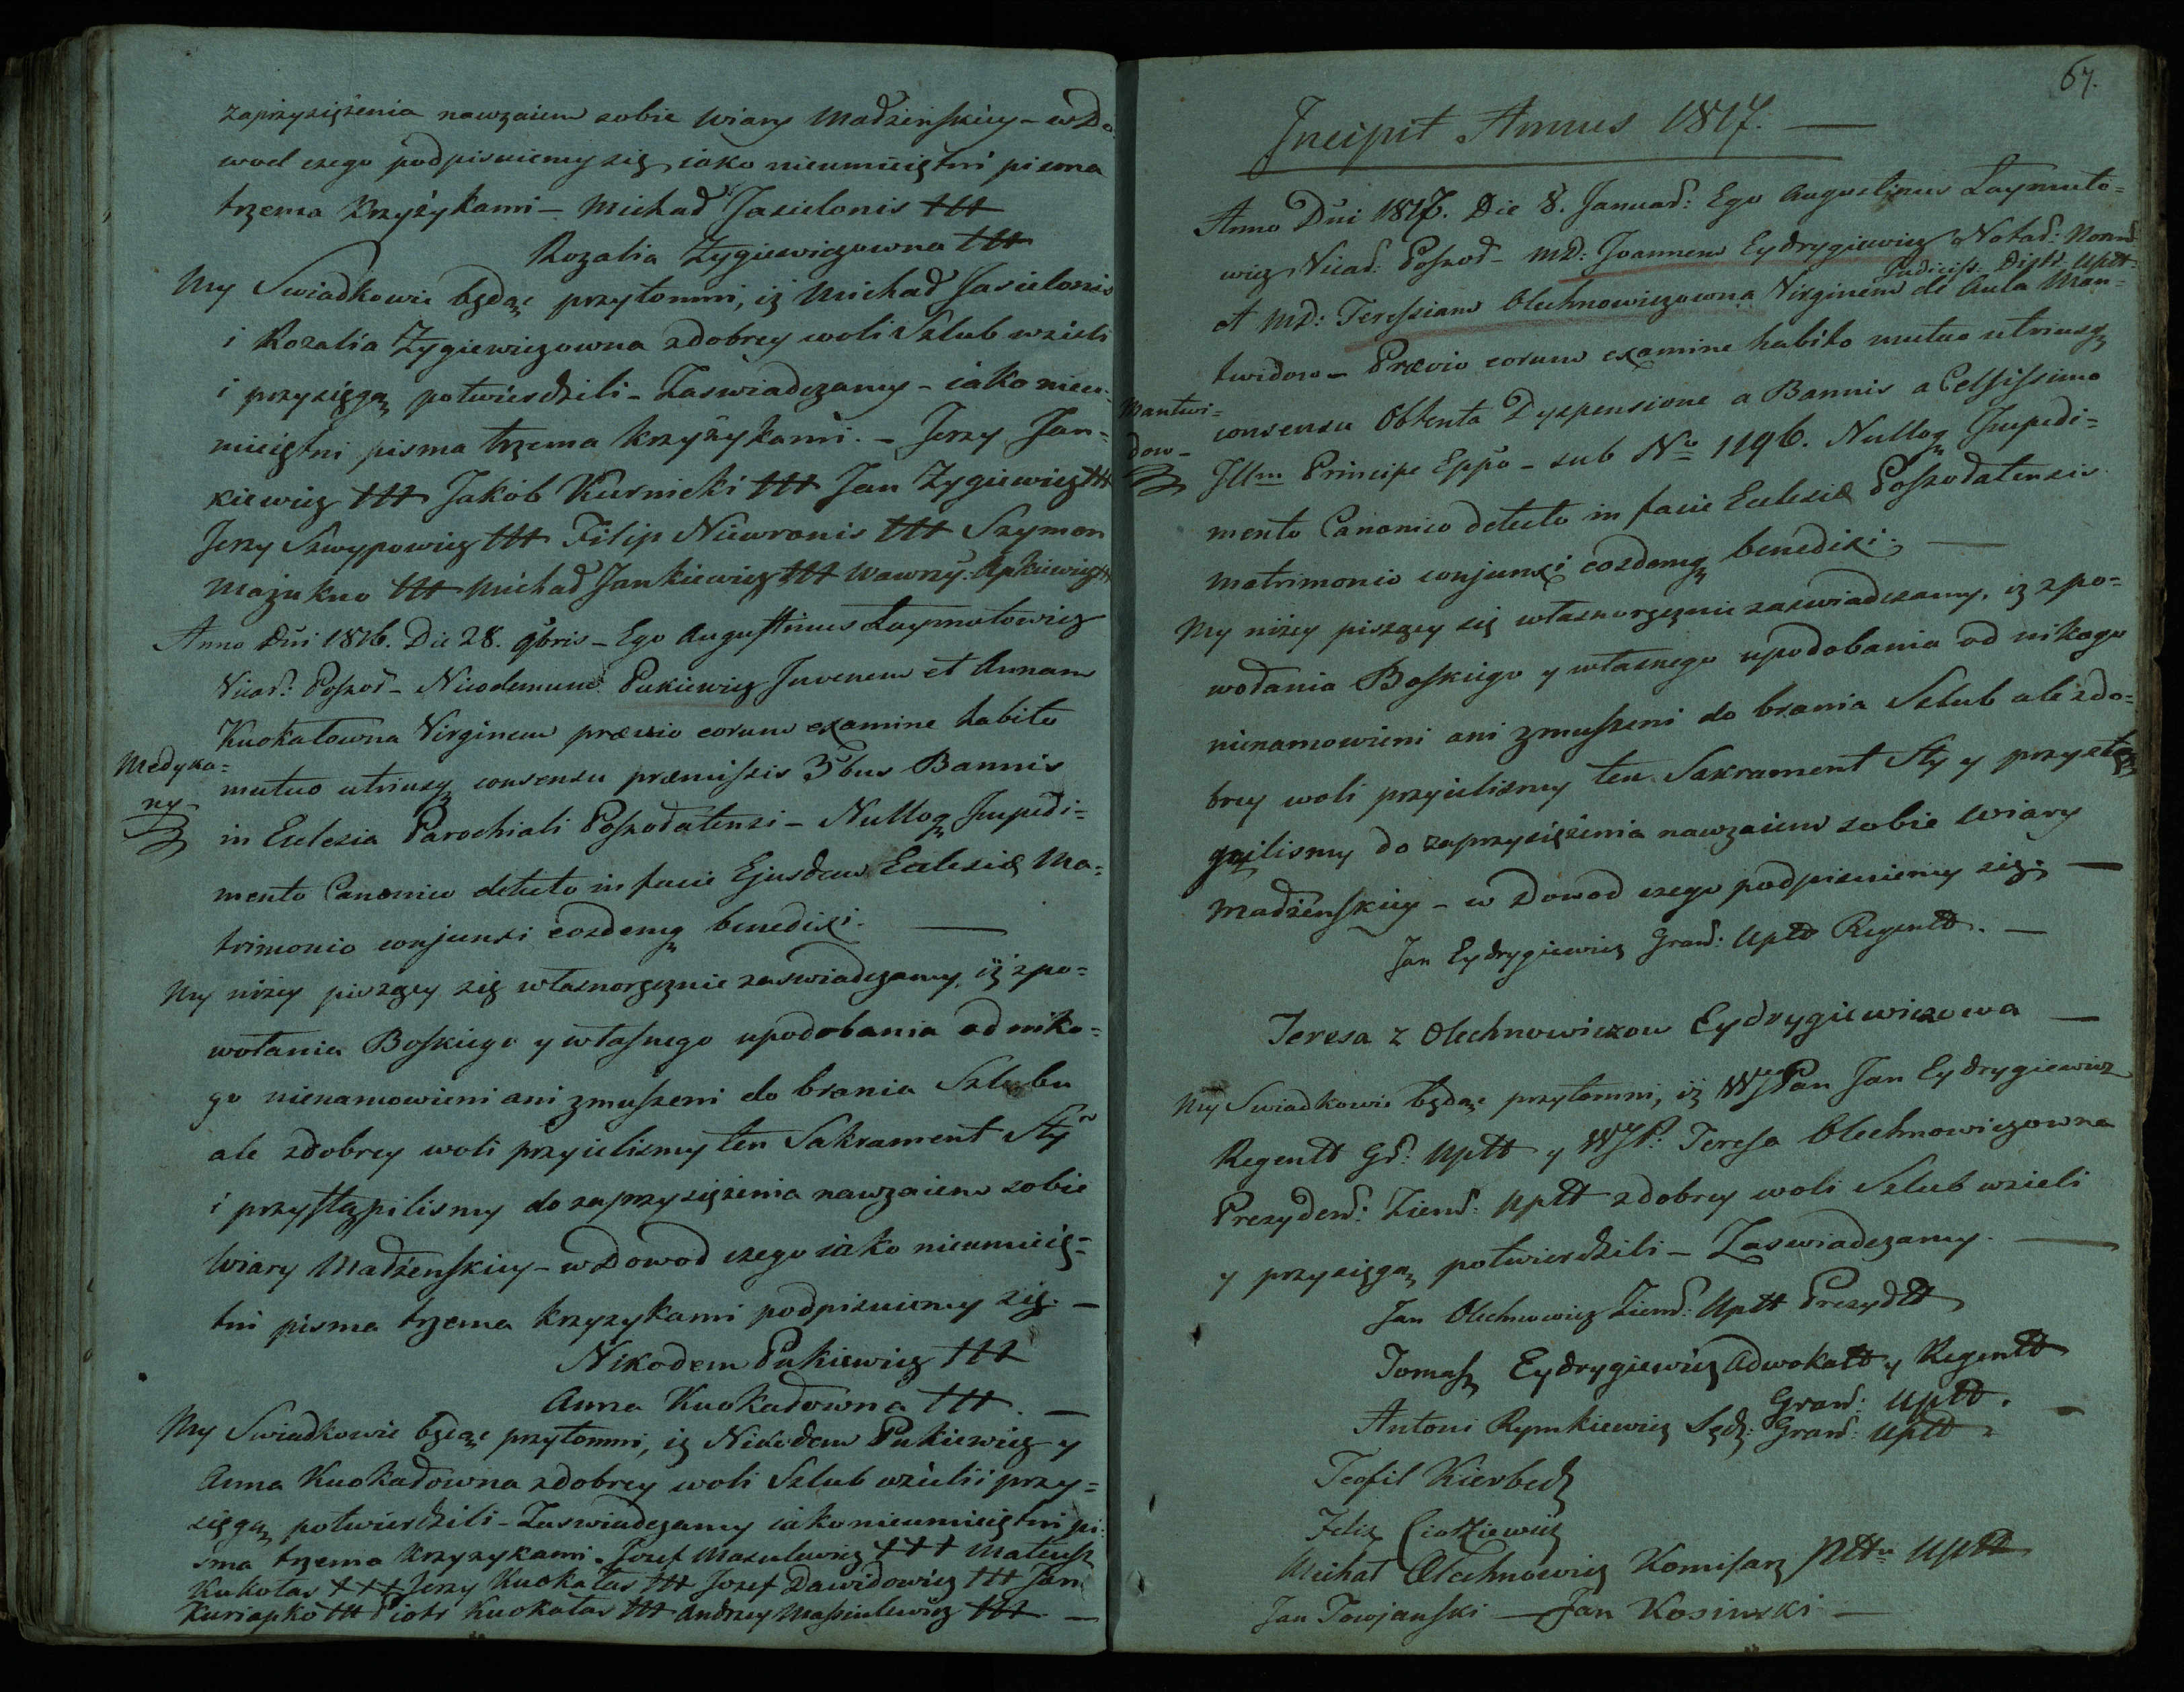 zaprzysiężenia nawzaiem sobie Wiary Madżenskiey – w Do
wod czego podpisuiemy się iako nieumieiętni pisma
trzema Krzyżykami – Michał Jasielonis ttt
Rozalia Zygiewiczowna ttt
My Swiadkowie będąc przytomni, iż Michał Jasielonis
i Rozalia Zygiewiczowna z dobrey woli Szlub wzieli
i przysięgą potwierdzili – Zaswiadczamy – iako nieu-
mieiętni pisma trzema krzyżykami. – Jerzy Jan=
kiewicz ttt Jakób Kurnicki ttt Jan Zygiewicz ttt
Jerzy Szwypowicz ttt Filip Niewronis ttt Szymon
Mażukno ttt Michał Jankiewicz ttt Wawrzy: Apkiewicz tt
Anno Dni 1816. Die 28. 9bris – Ego Augustinus Laymutowicz
Vicar: Poszoł – Nicodemum Pukiewicz Juvenem et Annam
Kuokałowna Virginem prævio eorum examine habito
Medyka=
ny
mutuo utriusq consensu præmissis 3bus Bannis
in Eclesia Parochiali Poszodatensi – Nulloq Impedi=
mento Canonico detecto in facie Ejusdem Eclesiæ Ma=
trimonio conjunxi eosdemq benedixi. —
My niżey piszący się własnoręcznie zaswiadczamy, iż z po=
wołania Boskiego y własnego upodobania od niko=
go nienamowieni ani zmuszeni do brania Szlubu
ale z dobrey woli przyielismy ten Sakrament Sty
i przystąpilismy do zaprzysiężenia nawzaiem sobie
Wiary Madżenskiey – w Dowod czego iako nieumieię=
tni pisma trzema krzyzykami podpisuiemy się. –
Nikodem Pukiewicz ttt
Anna Kuokadowna ttt. –
My Swiadkowie będąc przytomni, iż Nikodem Pukiewicz y
Anna Kuokadowna z dobrey woli Szlub wzieli i przy=
sięgą potwierdzili – Zaswiadczamy iako nieumieiętni pi:
sma trzema krzyzykami. Jozef Masulewicz ttt Mateusz
Kukołas ttt Jerzy Kuokałas ttt Jozef Dawidowicz ttt Jan
Kuriapko ttt Piotr Kuokałas ttt Andrzey Massiulewicz ttt —
67.
Incipit Annus 1817. —
Anno Dni 1817. Die 8. Januar: Ego Augustinus Laymuto=
wicz Vicar: Poszoł – MD: Joannem Eydrygiewicz Notar:
Judiciss. Distr. Uptt
et MD: Teressiam Olechnowiczowna Virginem de Aula Man=
twidow – Prævio eorum examine habito mutuo utriusq
Mantwi=
dow –
consensu Obtenta Dyspensione a Bannis a Celsissimo
Illm Principe Eppo – sub No 1196. Nulloq Impedi=
mento Canonico detecto in facie Eclesiæ Poszodatensis
Matrimonio conjunxi eosdemq benedixi. —
My niżey piszący się własnoręcznie zaswiadczamy, iż z po=
wołania Boskiego y własnego upodobania od nikogo
nienamowieni ani zmuszeni do brania Szlub ale z do=
brey woli przyielismy ten Sakrament Sty y przystą
pilismy do zaprzysiężenia nawzaiem sobie Wiary
Madżenskiey – w Dowod czego podpisuiemy się. —
Jan Eydrygiewicz Grand: Uptt Regentt. —
Teresa z Olechnowiczow Eydrygiewiczowa —
My Swiadkowie będąc przytomni, iż WJPan Jan Eydrygiewicz
Regentt Gd: Uptt y WJP: Teresa Olechnowiczowna
Prezydend: Ziemd: Uptt z dobrey woli Szlub wzieli
y przysięgą potwierdzili – Zaswiadczamy. —
Jan Olechnowicz Ziemd: Uptt Prezydtt
Tomasz Eydrygiewicz Adwokatt y Regentt
Grand: Uptt. –
Antoni Rymkiewicz Sędz: Grand: Uptt
Teofil Kierbedz
Felix
Michał Olechnowicz Komisarz Pttu Uptt
Jan Towjanski — Jan Kosinski —